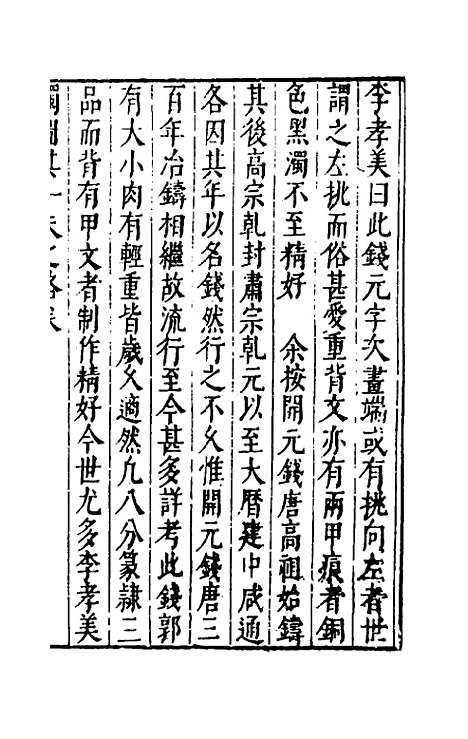 李孝美曰此錢元字次畫端或有挑向左者世
謂之左挑而俗甚愛重背文亦有兩甲痕者銅
色黑濁不至精好　余按開元錢唐高祖始鑄
其後高宗乾封肅宗乾元以至大曆建中咸通
各因其年以名錢然行之不久惟開元錢唐三
百年冶鑄相繼故流行至今甚多詳考此錢郭
有大小肉有輕重皆歲久適然凢八分篆隷三
品而背有甲文者制作精好今世尤多李孝美